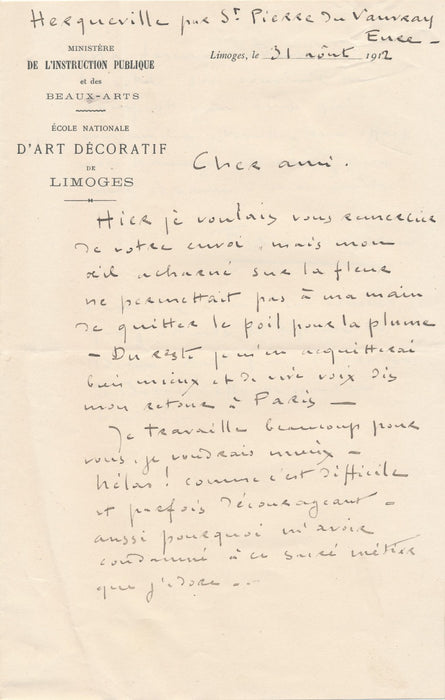 Herqueville par St Pierre du Vauvray
Eure -
MINISTÈRE
DE L'INSTRUCTION PUBLIQUE
et des
BEAUX-ARTS
ÉCOLE NATIONALE
D'ART DÉCORATIF
DE
LIMOGES
Limoges, le 31 août 1912
Cher ami.
Hier je voulais vous remercier
de votre envoi, mais mon
œil acharné sur la fleur
ne permettait pas à ma main
de quitter le poil pour la plume
- Du reste je m'en acquitterai
bien mieux et de vive voix dès
mon retour à Paris -
Je travaille beaucoup pour
vous, je voudrais mieux -
hélas ! comme c'est difficile
et parfois décourageant -
aussi pourquoi m'avoir
condamné à ce sacré métier
que j'adore - -